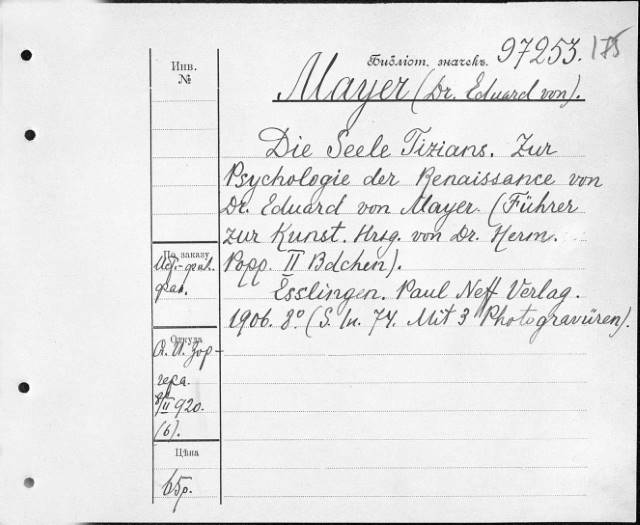 Инв.
№
Библіот. значекъ. 97253. 175
Mayer (Dr. Eduard von).
Die Seele Tizians. Zur
Psychologie der Renaissance von
Dr. Eduard von Mayer. (Führer
zur Kunst. Hrsg. von Dr. Herm.
Popp. II Bdchen).
Esslingen. Paul Neff Verlag.
1906. 8º (S. In. 74. Mit 3 Photogravüren).
По заказу
Ист.-фил.
фак.
Откуда
гера.
8/II 920.
(6).
Цѣна
65р.